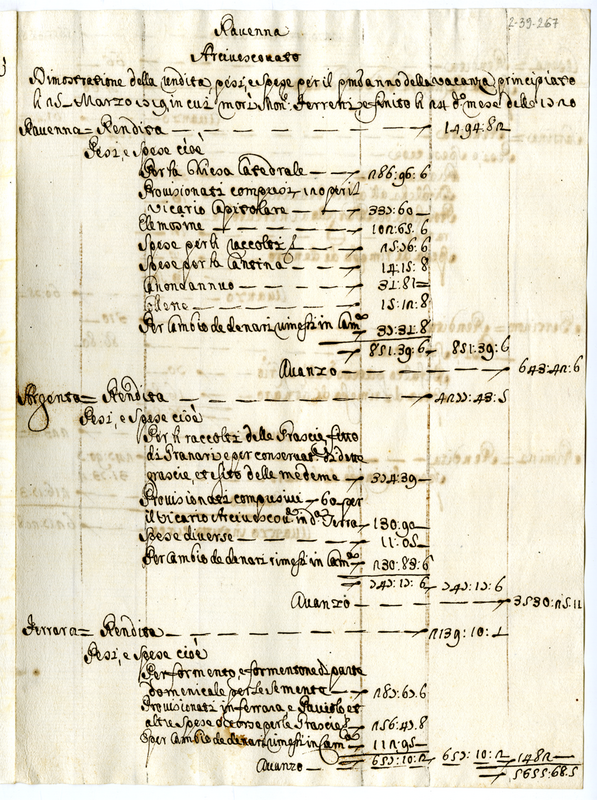 2-39-267
Ravenna
Arcivescovato
Dimostratione della rendita pesi, e spese per il pmo anno della vacanza principiato
li 25 Marzo 1719 in cui morì Mons.r Ferretti, e finito li 24 do mese dello 1720
Ravenna = Rendita 1494:82
Pesi, e spese cioè
Per la Chiesa Catedrale 286:96:6
Provisionati compresi 120 per il
Vicario Capitolare 337:60
Elemosine 102:65:6
Spese per li raccolti 25:76:6
Spese per la Cantina 14:15:8
Canon annuo 31:81
15:12:8
Per Cambio de denari rimessi in Cam.a 37:31:8
851:39:6 851:39:6
Avanzo 643:42:6
Argenta = Rendita 4277:43:5
Pesi, e spese cioè
Per li raccolti delle Grascie, fitto
di Granari, e per conservat.e di dette
grascie, et esito delle medeme 374:39
Provisionati compresivi 60 per
il Vicario Arcivescov.e in d.a Terra 130:90
Spese diverse 11:05
Per Cambio de denari rimessi in Cam.a 230:83:6
747:17:6 747:17:6
Avanzo 3530:25:11
Ferrara = Rendita 2139:10:2
Pesi, e spese cioè
Per formento, e formentone di parte
domenicale per le semente 287:67:6
Provisionati in ferrara e et
altre spese occorse per le Grascie 256:47:8
E per Cambio de denari rimessi in Cam.a 112:95
657:10:2 657:10:2 1482
Avanzo 5655:68:5